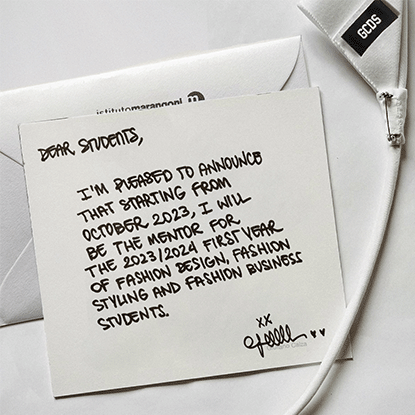 GCDS
istitutomarangoni
DEAR STUDENTS,
I'M PLEASED TO ANNOUNCE
THAT STARTING FROM
OCTOBER 2023, I WILL
BE THE MENTOR FOR
THE 2023/2024 FIRST YEAR
OF FASHION DESIGN, FASHION
STYLING AND FASHION BUSINESS
STUDENTS.
XX